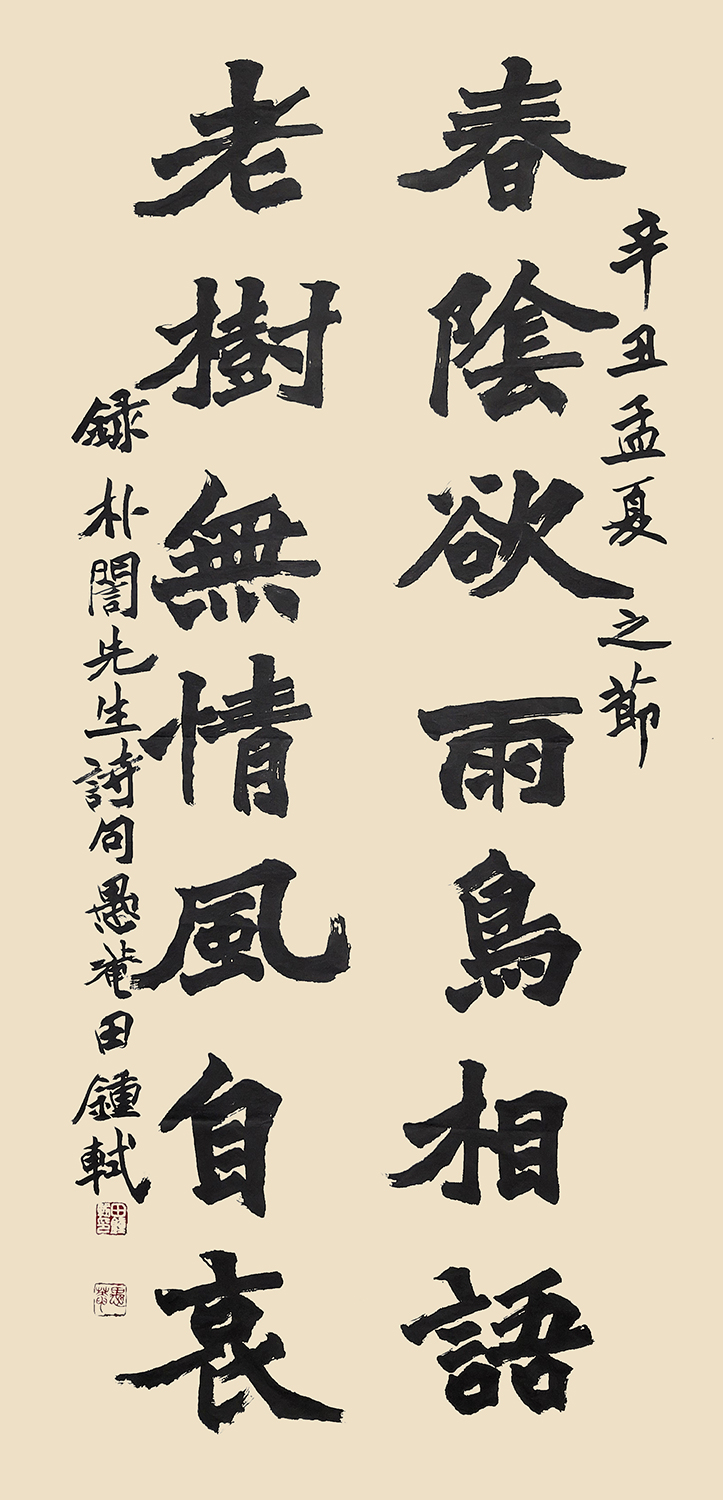 辛丑孟夏之節
春陰欲雨鳥相語
老樹無情風自哀
録朴誾先生詩句愚菴田鍾軾